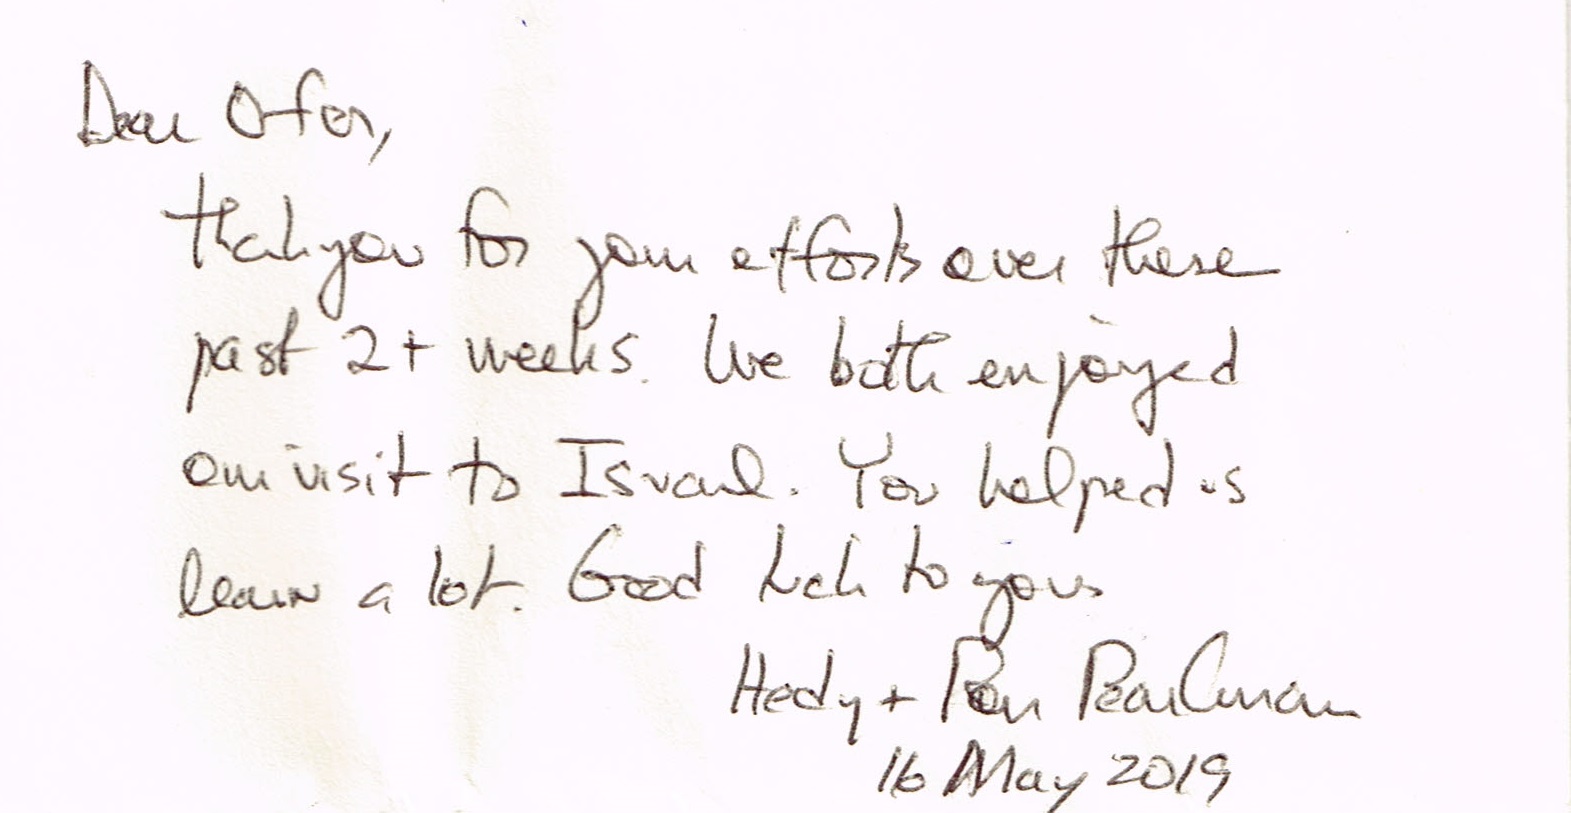 Dear Ofer,
Thank you for your efforts over these
past 2+ weeks. We both enjoyed
our visit to Israel. You helped us
learn a lot. Good luck to you
Hedy + Ron Pearlman
16 May 2019